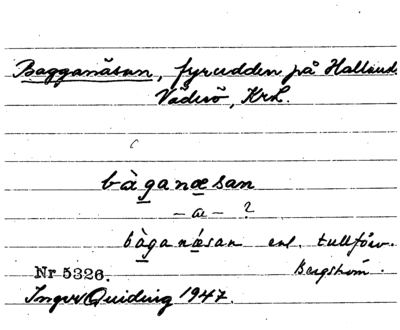 Bagganäsan, fyrudden på Halland.
Väderö, KrL.
bàganæsan
– a – ?
bàganǽsan enl. tullförv.
Bergström.
Nr 5326.
Ingvr Quiding 1947.